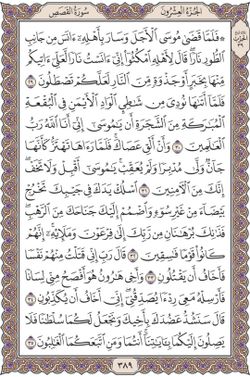 الجزء العشرون
سورة القصص
۞ فلما قضى موسى الأجل وسار بأهله ءانس من جانب
الطور نارا قال لأهله امكثوا إني ءانست نارا لعلي ءاتيكم
منها بخبر أو جذوة من النار لعلكم تصطلون ٢٩
فلما أتىها نودي من شاطئ الواد الأيمن في البقعة
المبركة من الشجرة أن يموسى إني أنا الله رب
العلمين ٣٠ وأن ألق عصاك فلما رءاها تهتز كأنها
جان ولى مدبرا ولم يعقب يموسى أقبل ولا تخف
إنك من الأمنين ٣١ اسلك يدك في جيبك تخرج
بيضاء من غير سوء واضمم إليك جناحك من الرهب
فذنك برهنان من ربك إلى فرعون وملإيه إنهم
كانوا قوما فسقين ٣٢ قال رب إني قتلت منهم نفسا
فأخاف أن يقتلون ٣٣ وأخي هرون هو أفصح مني لسانا
فأرسله معي ردءا يصدقني إني أخاف أن يكذبون ٣٤
قال سنشد عضدك بأخيك ونجعل لكما سلطنا فلا
يصلون إليكما بـٔايتنا أنتما ومن اتبعكما الغلبون ٣٥
٣٨٩